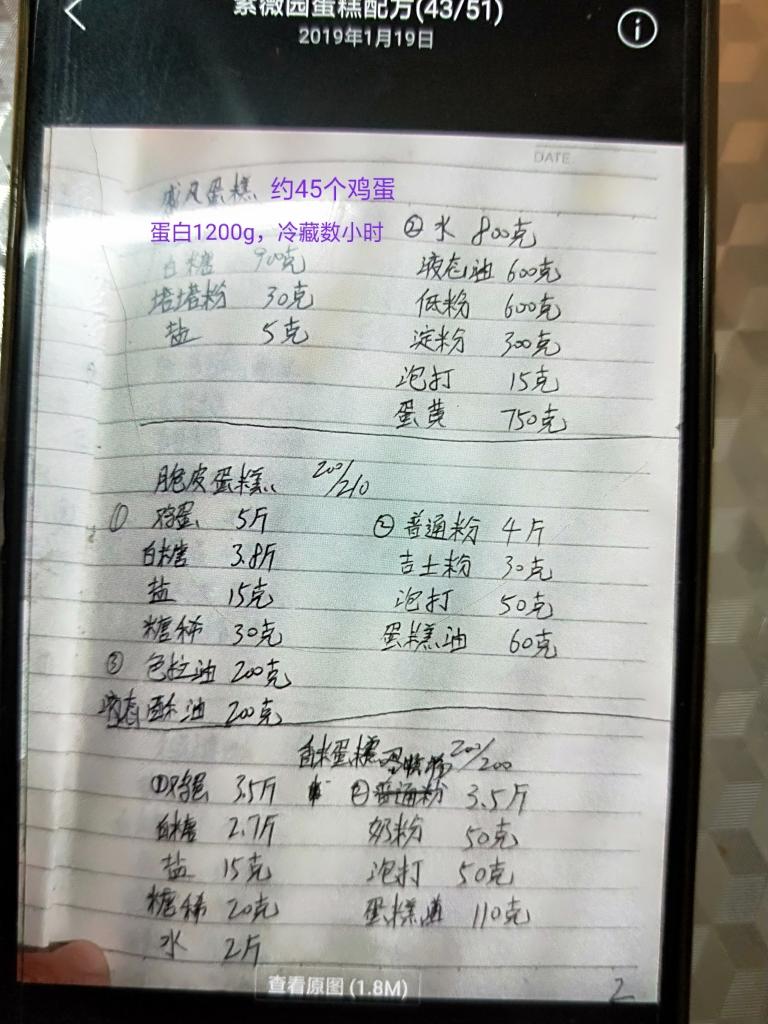 紫薇园蛋糕配方(43/51)
2019年1月19日
DATE.
戚风蛋糕 约45个鸡蛋
蛋白1200g，冷藏数小时
白糖 900克
塔塔粉 30克
盐 5克
② 水 800克
液态油 600克
低粉 600克
淀粉 300克
泡打 15克
蛋黄 750克
脆皮蛋糕 200/210
① 鸡蛋 5斤
白糖 3.8斤
盐 15克
糖稀 30克
② 普通粉 4斤
吉士粉 30克
泡打 50克
蛋糕油 60克
③ 色拉油 200克
液态酥油 200克
蛋糕 200/200
①鸡蛋 3.5斤
白糖 2.7斤
盐 15克
糖稀 20克
水 2斤
② 普通粉 3.5斤
奶粉 50克
泡打 50克
蛋糕油 110克
查看原图 (1.8M)
2